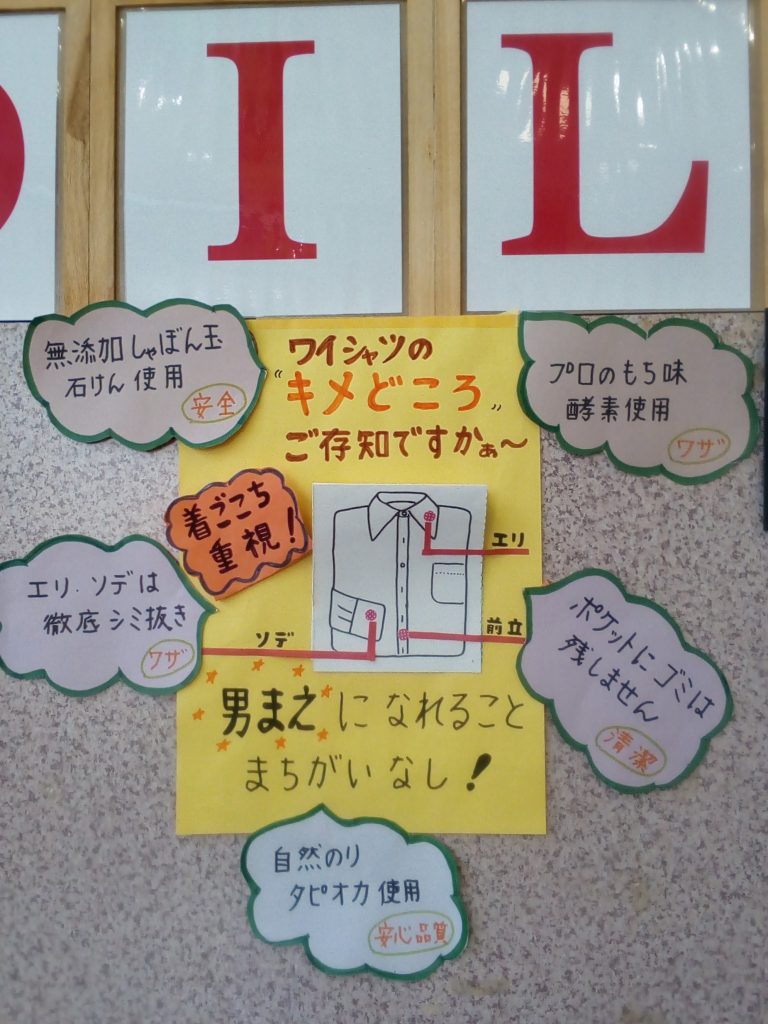 IL
無添加しゃぼん玉
石けん使用
安全
ワイシャツの
“キメどころ”
ご存知ですかぁ〜
プロのもち味
酵素使用
ワザ
着ごこち
重視!
エリ
エリ.ソデは
徹底シミ抜き
ワザ
ソデ
前立
ポケットにゴミは
残しません
清潔
男まえになれること
まちがいなし!
自然のり
タピオカ使用
安心品質